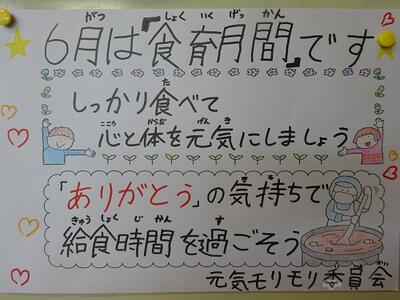 6月は『食育月間』です
しっかり食べて
心と体を元気にしましょう
「ありがとう」の気持ちで
給食時間を過ごそう
元気モリモリ委員会